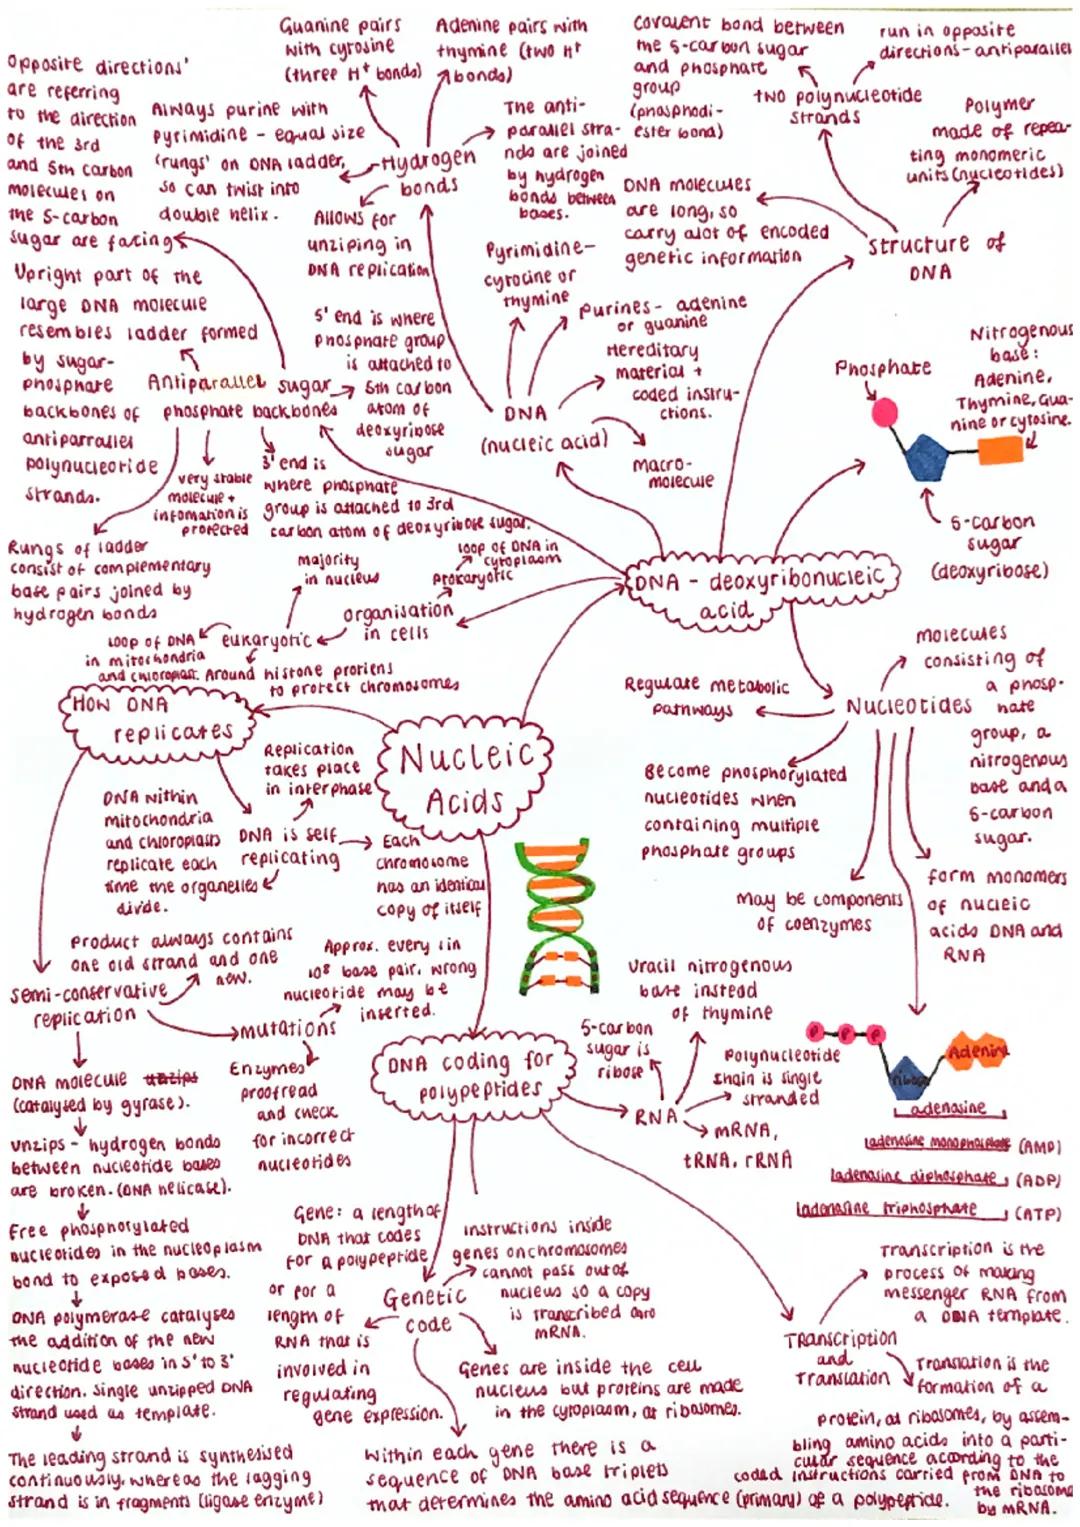 Opposite directions'
are referring
to the direction
of the 3rd
and 5th carbon
molecules on
the 5-carbon
sugar are facing
Always purine with
pyrimidine - equal size
'rungs' on DNA ladder,
so can twist into
double helix.
Guanine pairs
with cyrosine
(three H+ bonds)
Adenine pairs with
thymine (two H+
bonds)
Hydrogen
bonds
The anti-
parallel stra-
nds are joined
by hydrogen
bonds between
bases.
Allows for
unziping in
DNA replication
Covalent bond between
the 5-carbon sugar
and phosphate
group
(phosphodi-
ester bond)
run in opposite
directions - antiparallel
two polynucleotide
strands
Polymer
made of repea-
ting monomeric
units (nucleotides)
DNA molecules
are long, so
carry alot of encoded
genetic information
structure of
DNA
Upright part of the
large DNA molecule
resembles ladder formed
by sugar-
phosphate
backbones of
antiparrallel
polynucleotide
strands.
Antiparallel sugar
phosphate backbones
5' end is where
phosphate group
is attached to
5th carbon
atom of
deoxyribose
sugar
very stable
molecule +
infomation is
protected
3' end is
where phosphate
group is attached to 3rd
carbon atom of deoxyribose sugar.
Rungs of ladder
consist of complementary
base pairs joined by
hydrogen bonds
Pyrimidine-
cytocine or
thymine
Purines- adenine
or guanine
Hereditary
material +
coded instru-
ctions.
DNA
(nucleic acid)
macro-
molecule
Phosphate
Nitrogenous
base:
Adenine,
Thymine, Gua-
nine or cytosine.
5-carbon
sugar
(deoxyribose)
DNA - deoxyribonucleic
acid
majority
in nucleus
loop of DNA in
cytoplasm
prokaryotic
organisation
in cells
eukaryotic
loop of DNA
in mitochondria
and chloroplast.
Around histone protiens
to protect chromosomes
HOW DNA
replicates
Nucleic
Acids
Replication
takes place
in interphase
DNA within
mitochondria
and chloroplasts
replicate each
time the organelles
divide.
DNA is self
replicating
Each
chromosome
has an identical
copy of itself
Regulate metabolic
pathways
Nucleotides
molecules
consisting of
a phosp-
hate
group, a
nitrogenous
base and a
5-carbon
sugar.
Become phosphorylated
nucleotides when
containing multiple
phosphate groups
may be components
of coenzymes
form monomers
of nucleic
acids DNA and
RNA
product always contains
one old strand and one
new.
semi-conservative
replication
Approx. every 1 in
10⁸ base pair, wrong
nucleotide may be
inserted.
mutations
Enzymes
proofread
and check
for incorrect
nucleotides
DNA molecule unzips
(catalysed by gyrase).
unzips - hydrogen bonds
between nucleotide bases
are broken. (DNA helicase).
Free phosphorylated
nucleotides in the nucleoplasm
bond to exposed bases.
DNA polymerase catalyses
the addition of the new
nucleotide bases in 5' to 3'
direction. Single unzipped DNA
strand used as template.
The leading strand is synthesised
continuously, whereas the lagging
strand is in fragments (ligase enzyme)
DNA coding for
polypeptides
Uracil nitrogenous
base instead
of thymine
5-carbon
sugar is
ribose
Polynucleotide
chain is single
stranded
RNA
mRNA,
tRNA, rRNA
P P P
ribose
Adenine
adenosine
adenosine monophosphate (AMP)
adenosine diphosphate (ADP)
adenosine triphosphate (ATP)
Gene: a length of
DNA that codes
for a polypeptide
or for a
length of
RNA that is
involved in
regulating
gene expression.
Genetic
code
instructions inside
genes on chromosomes
cannot pass out of
nucleus so a copy
is transcribed onto
mRNA.
Genes are inside the cell
nucleus but proteins are made
in the cytoplasm, at ribosomes.
Within each gene there is a
sequence of DNA base triplets
that determines the amino acid sequence (primary) of a polypeptide.
Transcription is the
process of making
messenger RNA from
a DNA template.
Transcription
and
Translation
Translation is the
formation of a
protein, at ribosomes, by assem-
bling amino acids into a parti-
cular sequence according to the
coded instructions carried from DNA to
the ribosome
by mRNA.